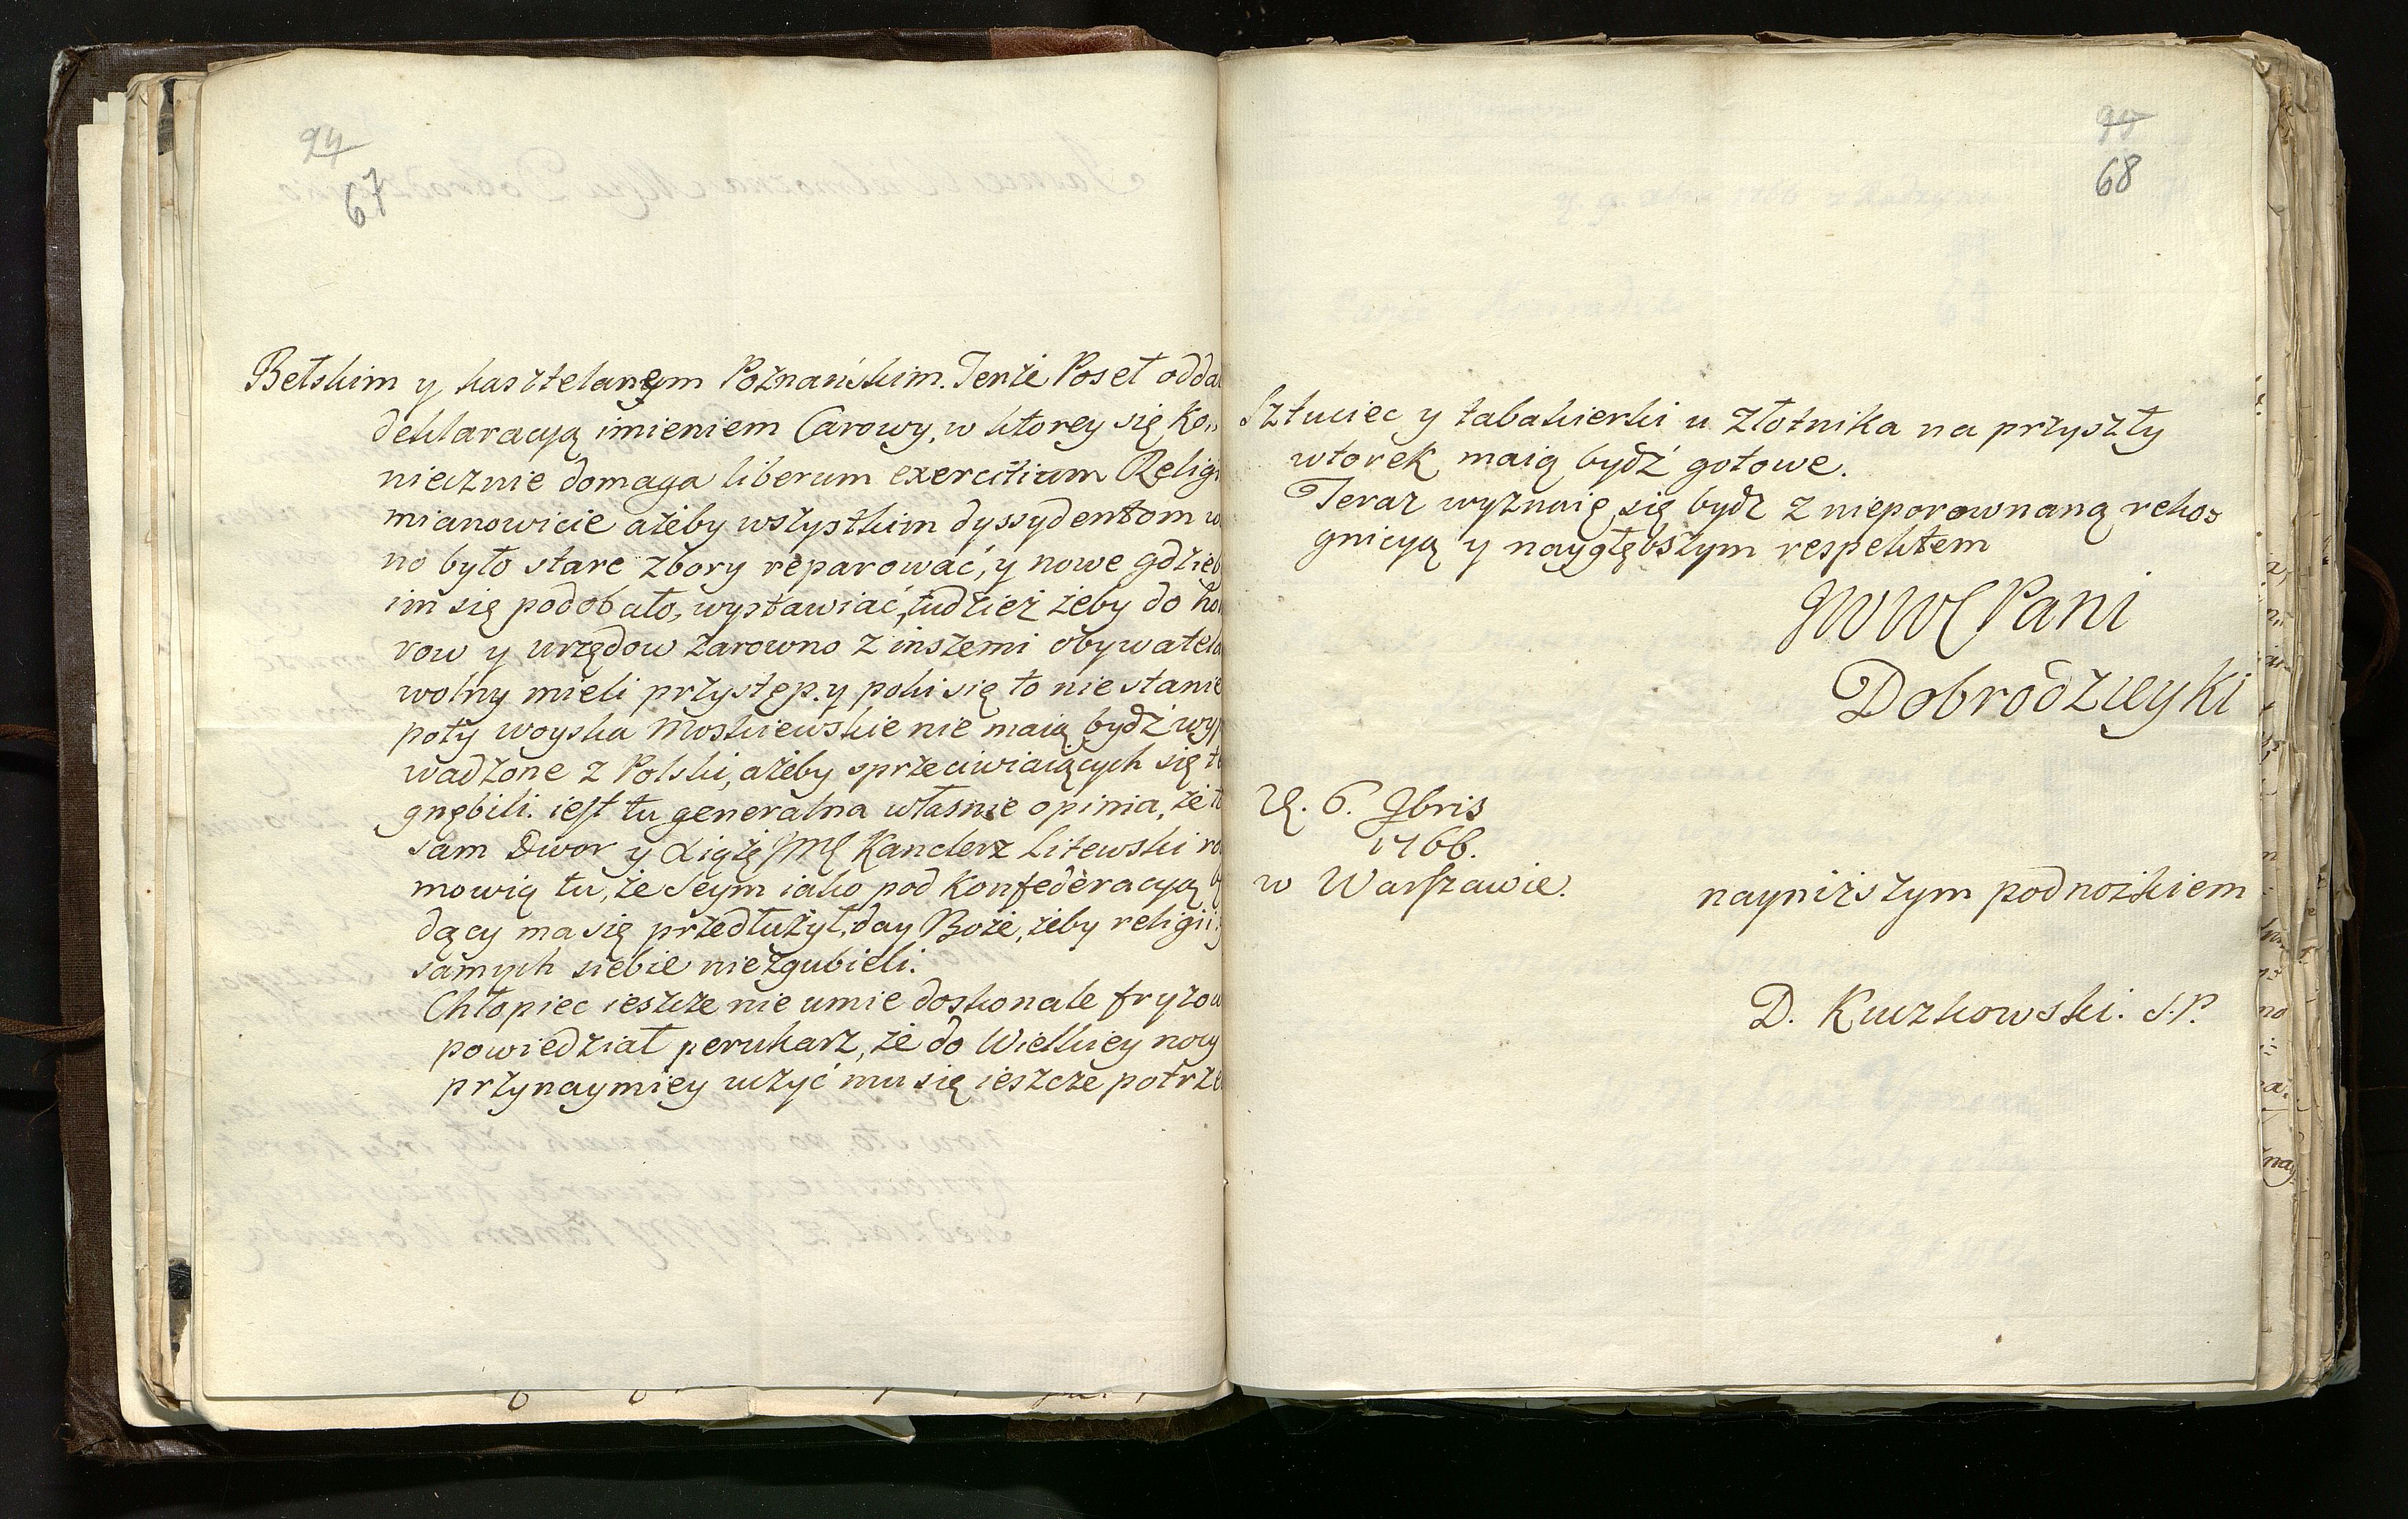 94
67
Bełskim y kasztelanem Poznańskim. Tenże Poseł odda
deklaracyą imieniem Carowy, w ktorey się Ko„
niecznie domaga liberum exercitium Religi
mianowicie ażeby wszystkim dyssydentom w
no było stare zbory reparować, y nowe gdzieb
im się podobało, wystawiać, tudzież żeby do ho
row y urzędow zarowno z inszemi obywatela
wolny mieli przystęp. y poki się to nie stanie
poty woyska Moskiewskie nie maią bydź wyp
wadzone z Polski, ażeby sprzeciwiaiących się t
gnębili. iest tu generalna własnie opinia, że t
sam Dwor y Xiąże JMC Kanclerz Litewski ro
mowią tu, że Seym iako pod Konfederacyą b
dący ma się przedłużyć, day Boże, żeby religii y
samych siebie niezgubieli.
Chłopiec ieszcze nie umie doskonale fryzow
powiedział perukarz, że do Wielkiey nocy
przynaymiey uczyć mu się ieszcze potrze
68
Sztuciec y tabakierki u złotnika na przyszły
wtorek maią bydź gotowe.
Teraz wyznaię się bydź z nieporownaną reko„
gnicyą y naygłębszym respektem
JWWC Pani
Dobrodzieyki
6. 9bris
1766.
w Warszawie.
nayniższym podnożkiem
D. Kuczkowski. S.P.